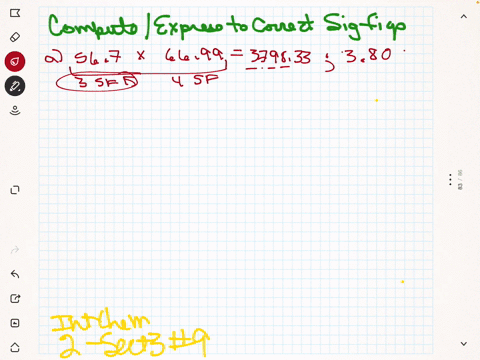 Compute/Express to Correct Sig-figs
a) 56.7 x 66.99 = 3798.33 ; 3.80 ·
3 SF 4 SF
Intchem
2 - Sect3 #9